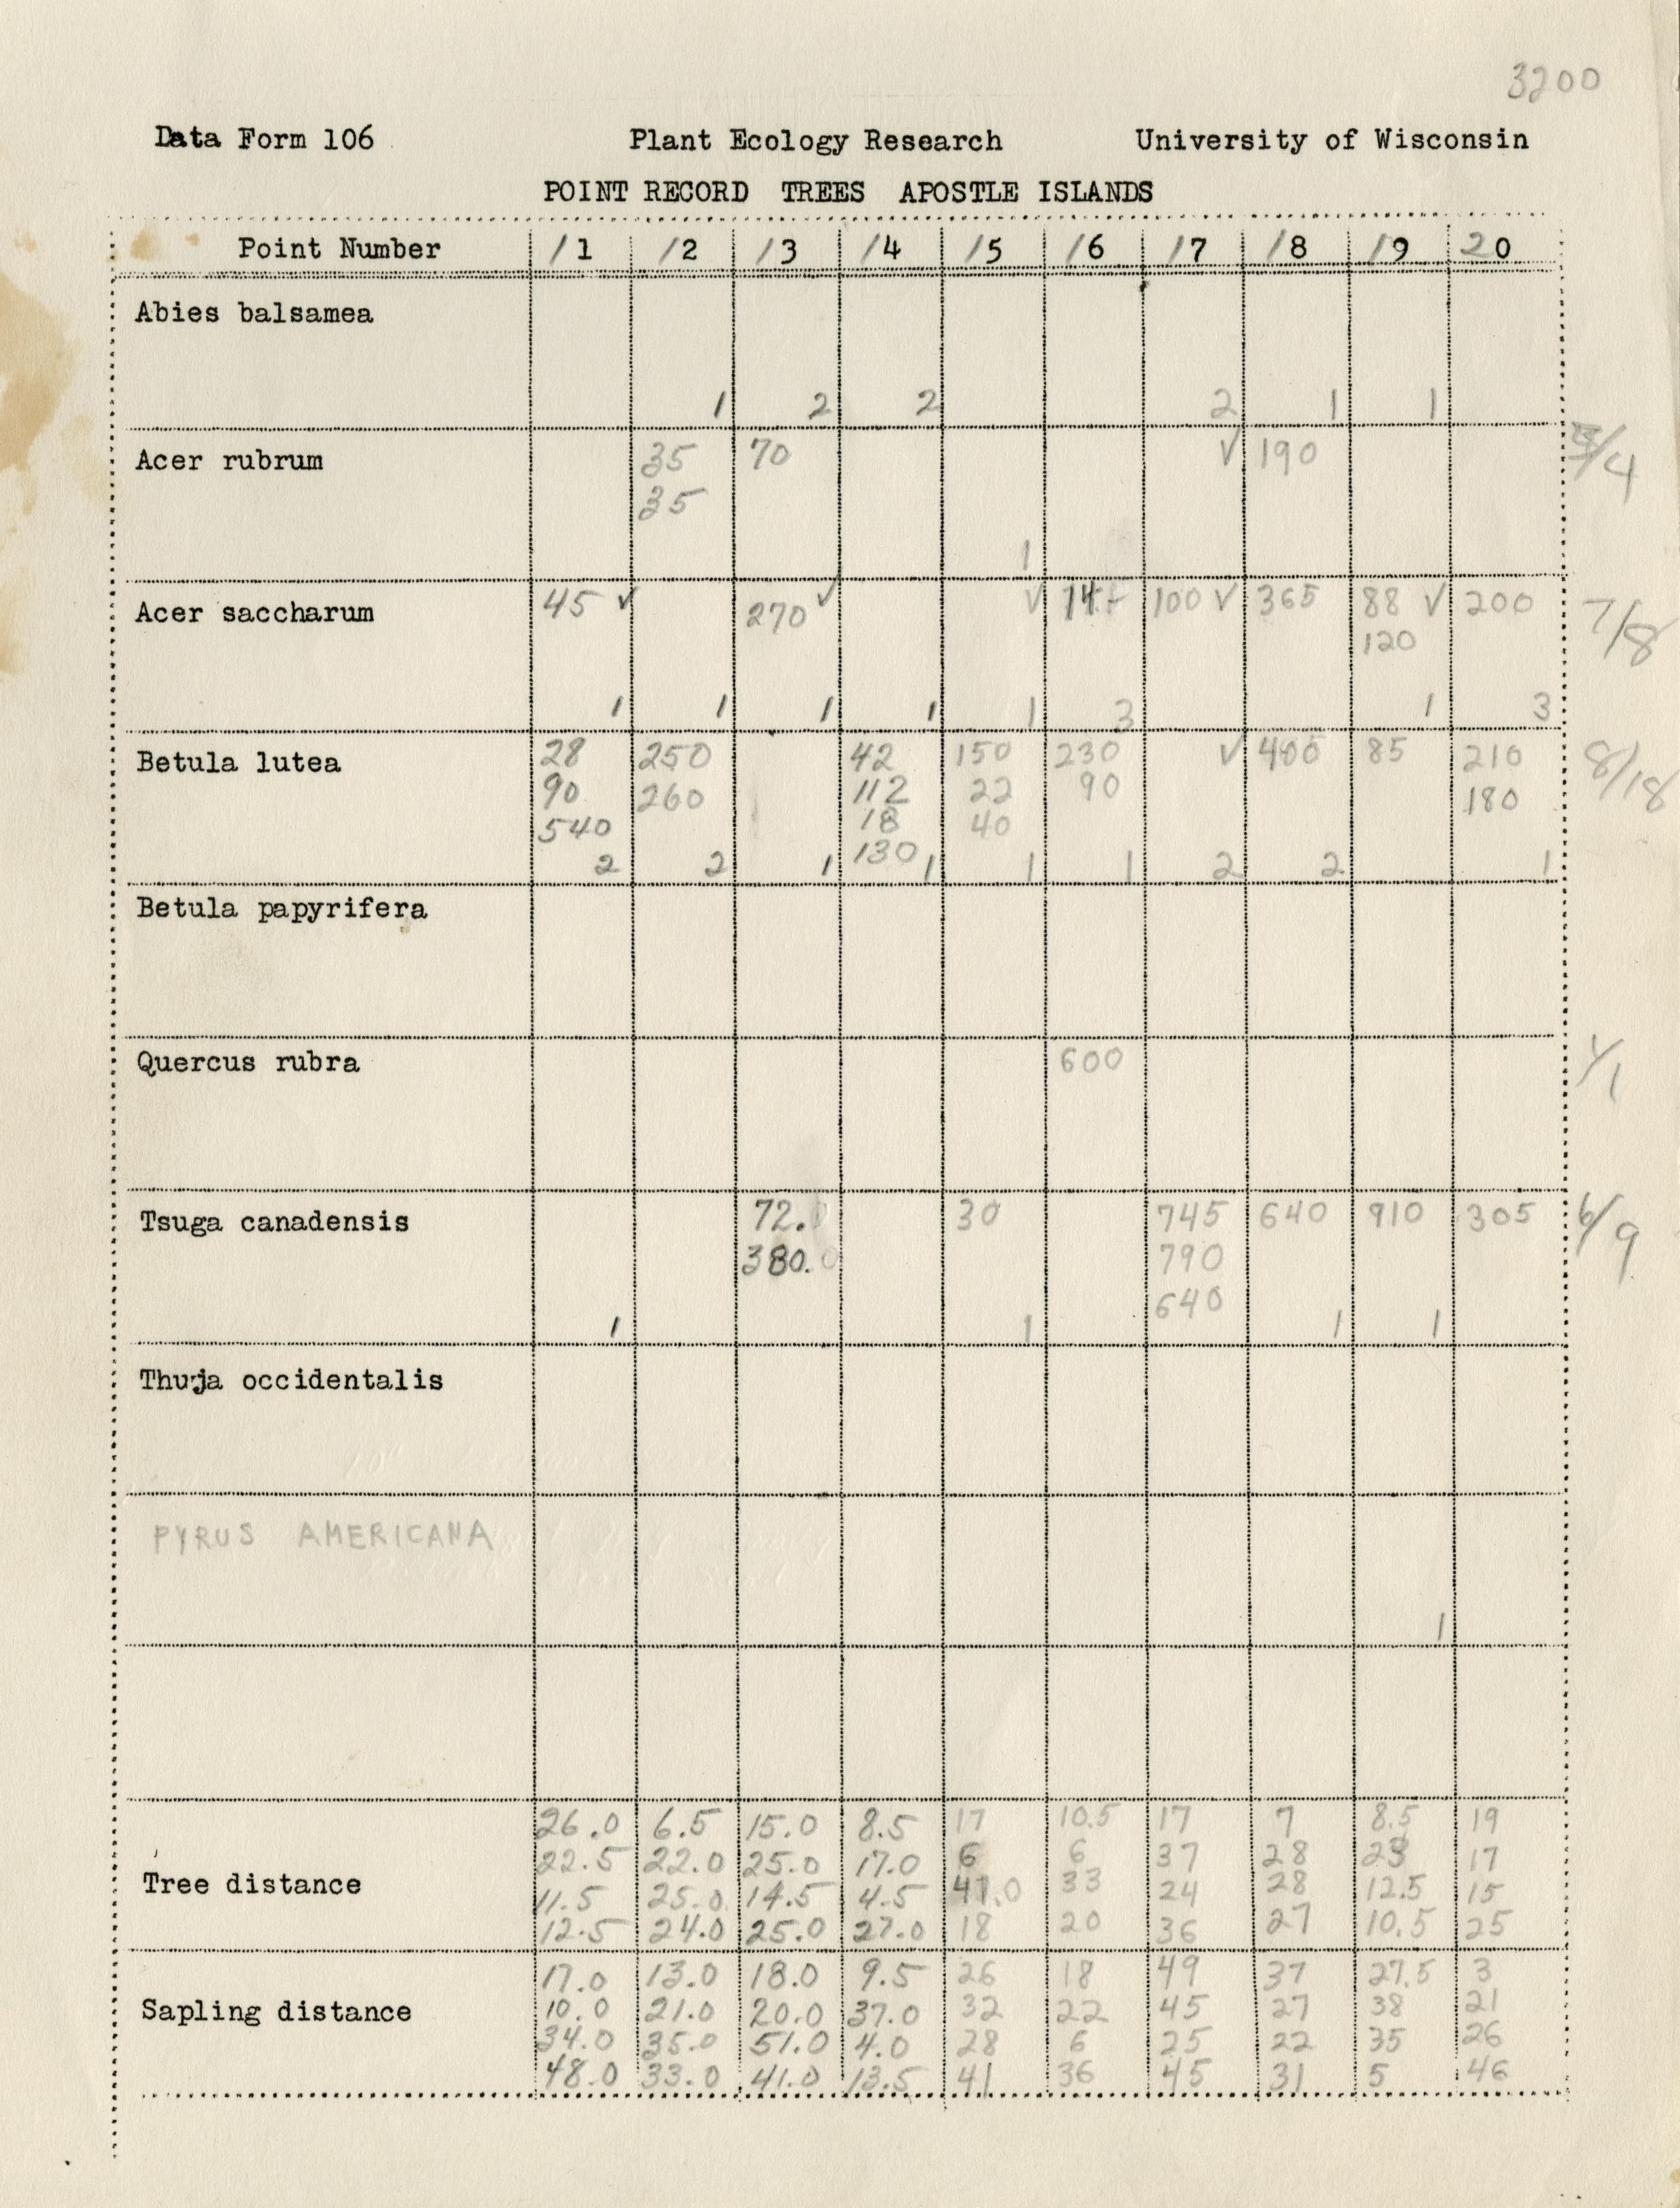 3200
Data Form 106 Plant Ecology Research University of Wisconsin
POINT RECORD TREES APOSTLE ISLANDS
Point Number 11 12 13 14 15 16 17 18 19 20
Abies balsamea
1 2 2 2 1 1
Acer rubrum 35 70 √ 190 /4
35
1
Acer saccharum 45 √ 270 √ √ 14 100 √ 365 88 √ 200 7/8
120
1 1 1 1 1 3 1 3
Betula lutea 28 250 42 150 230 √ 400 85 210 8/18
90 260 112 22 90 180
540 18 40
2 2 1 130 1 1 1 2 2 1
Betula papyrifera
Quercus rubra 600 1/1
Tsuga canadensis 72. 30 745 640 910 305 6/9
380.0 790
640
1 1 1 1
Thuja occidentalis
PYRUS AMERICANA
1
26.0 6.5 15.0 8.5 17 10.5 17 7 8.5 19
22.5 22.0 25.0 17.0 6 6 37 28 23 17
Tree distance 11.5 25.0 14.5 4.5 41.0 33 24 28 12.5 15
12.5 24.0 25.0 27.0 18 20 36 27 10.5 25
17.0 13.0 18.0 9.5 26 18 49 37 27.5 3
Sapling distance 10.0 21.0 20.0 37.0 32 22 45 27 38 21
34.0 35.0 51.0 4.0 28 6 25 22 35 26
48.0 33.0 41.0 13.5 41 36 45 31 5 46